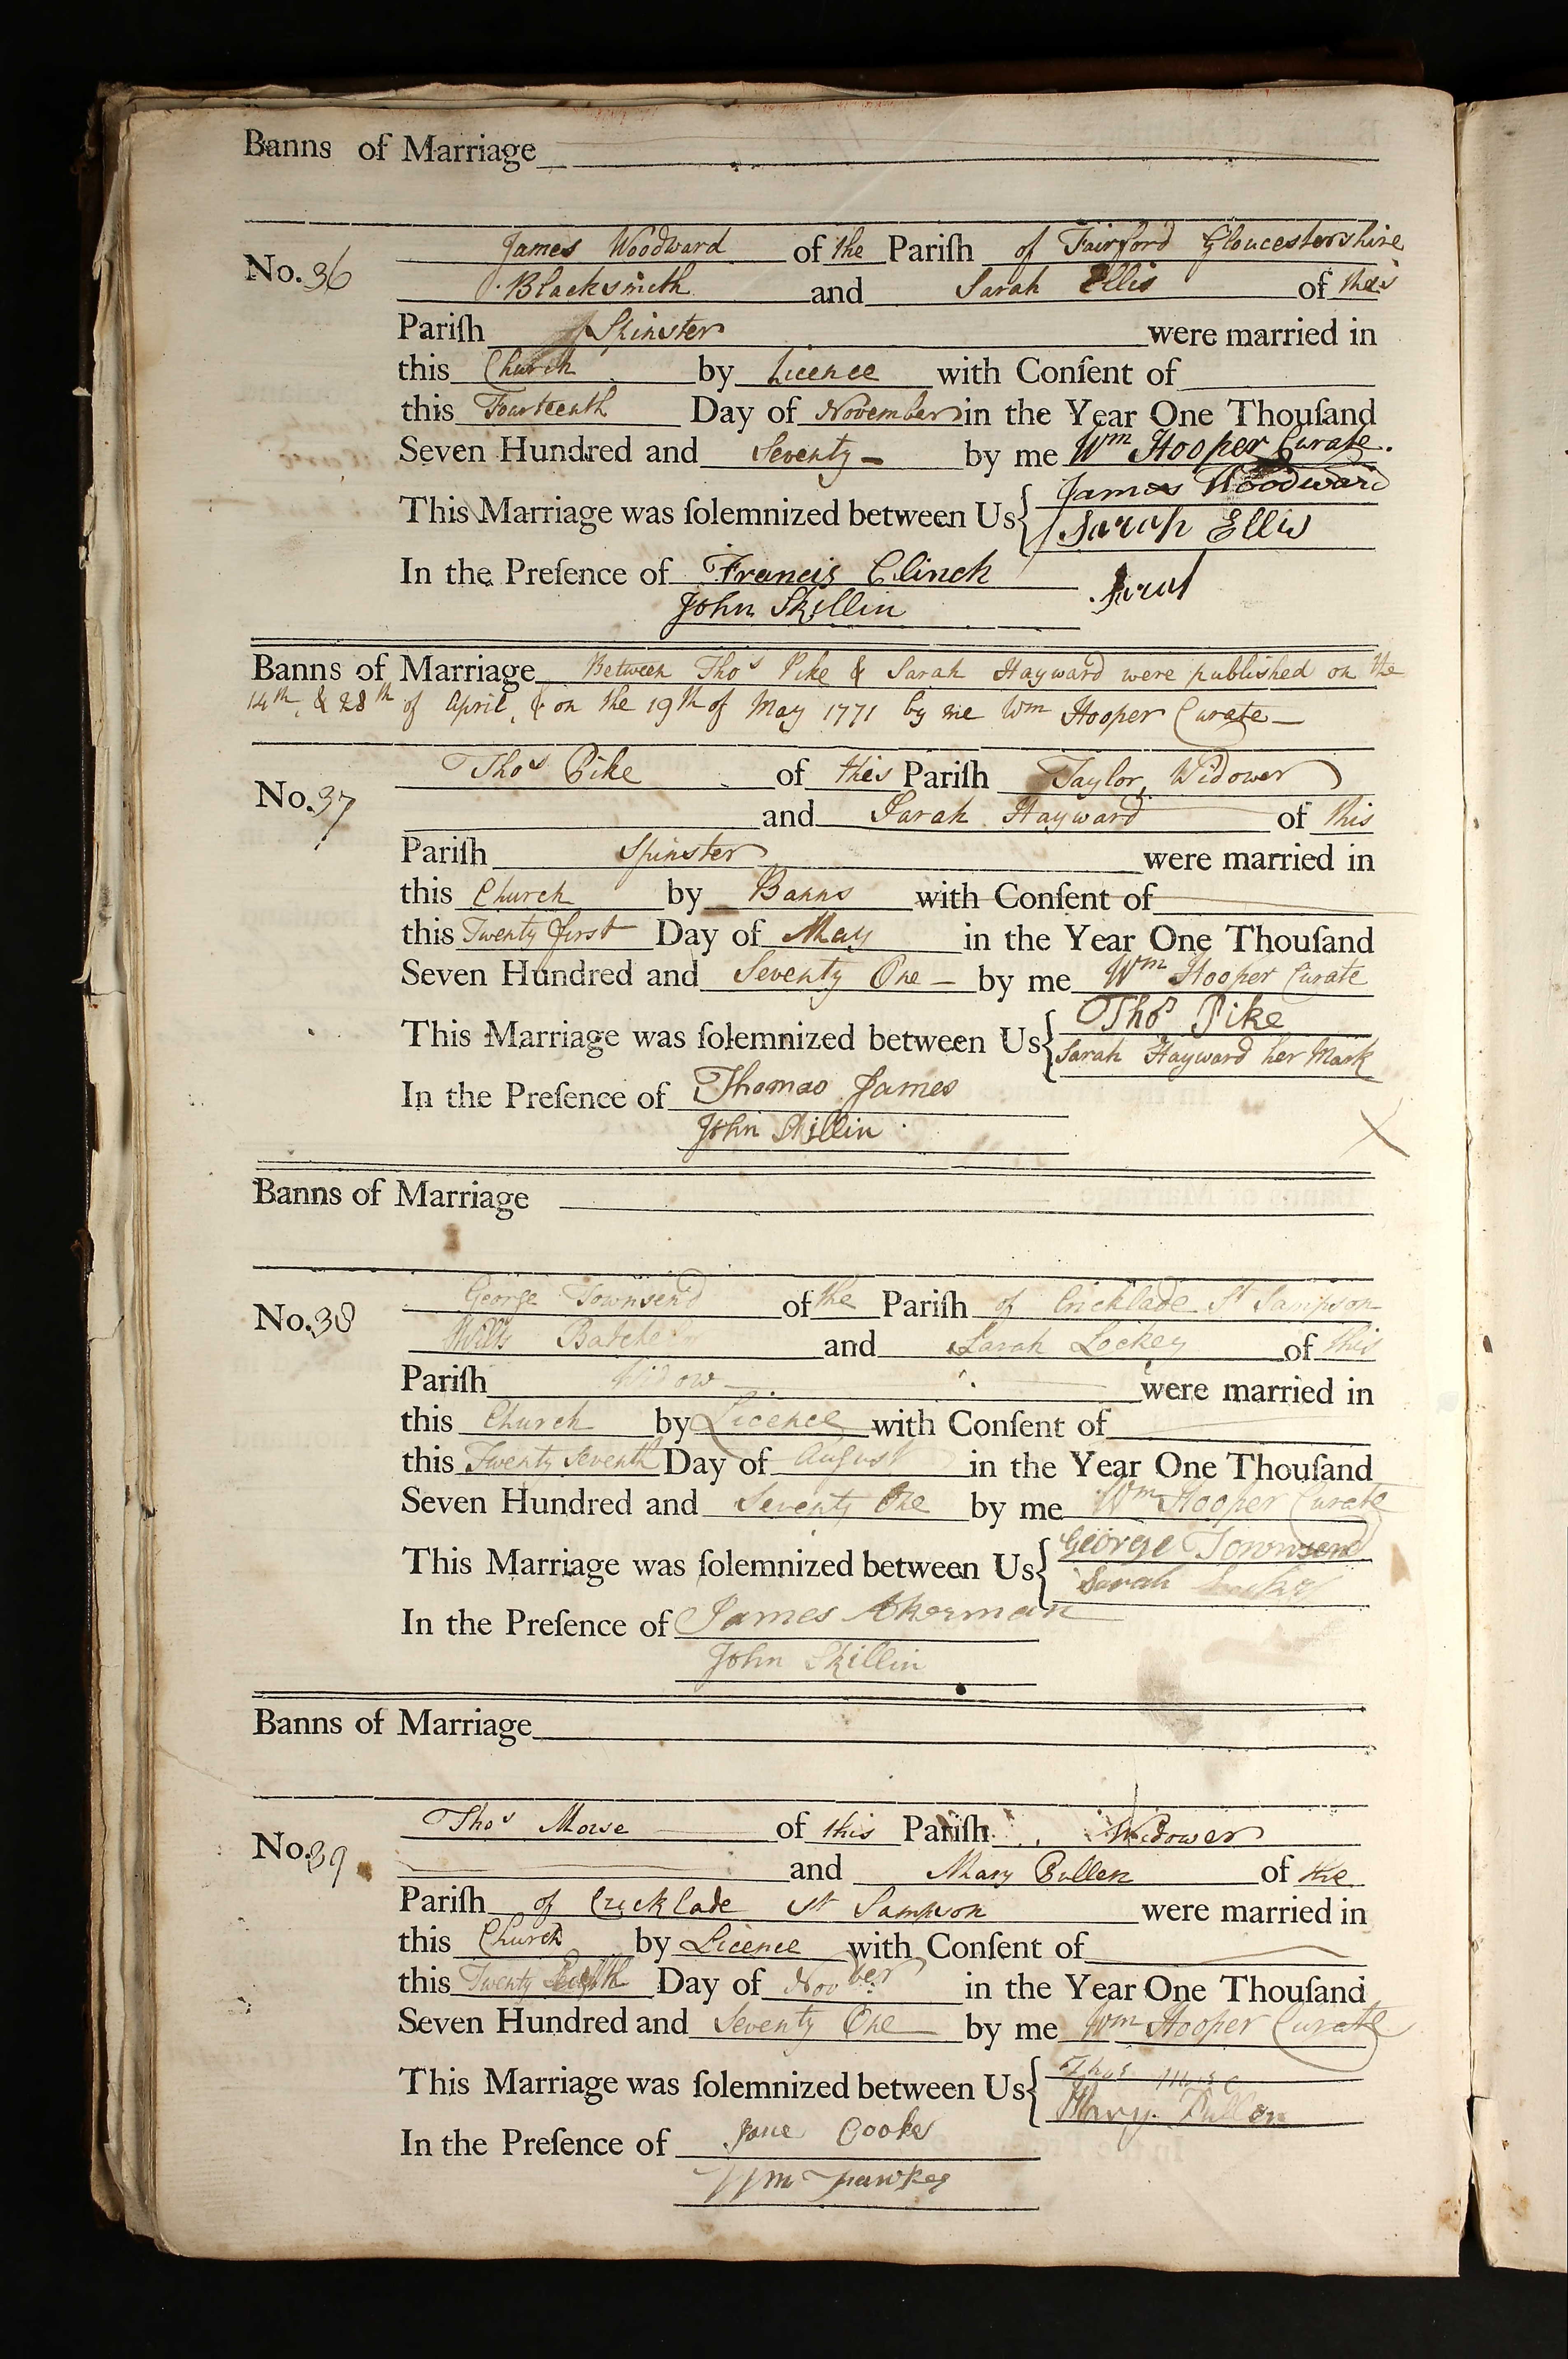 Banns of Marriage
No. 36 James Woodward of the Pariſh of Fairford Gloucestershire
Blacksmith and Sarah Ellis of this
Pariſh Spinster were married in
this Church by Licence with Conſent of
this Fourteenth Day of November in the Year One Thouſand
Seven Hundred and Seventy by me Wm Hooper Curate.
This Marriage was ſolemnized between Us { James Woodward
Sarah Ellis
In the Preſence of Francis Clinch
John Skillin
Banns of Marriage Between Thos Pike & Sarah Hayward were published on the
14th, & 28th of April, & on the 19th of May 1771 by me Wm Hooper Curate
No. 37 Thos Pike of this Pariſh Taylor, Widower
and Sarah Hayward of this
Pariſh Spinster were married in
this Church by Banns with Conſent of
this Twenty first Day of May in the Year One Thouſand
Seven Hundred and Seventy One by me Wm Hooper Curate
This Marriage was ſolemnized between Us { Thos Pike
Sarah Hayward her Mark
In the Preſence of Thomas James
John Skillin
X
Banns of Marriage
No. 38 George Townsend of the Pariſh of Cricklade St Sampson
Wilts and Sarah Lockey of this
Pariſh Widow were married in
this Church by Licence with Conſent of
this Twenty Seventh Day of August in the Year One Thouſand
Seven Hundred and Seventy One by me Wm Hooper Curate
This Marriage was ſolemnized between Us { George Townsend
Sarah
In the Preſence of James Akerman
John Skillin
Banns of Marriage
No. 39 Thos Morse of this Pariſh Widower
and Mary Pullen of the
Pariſh of Cricklade St Sampson were married in
this Church by Licence with Conſent of
this Twenty Eighth Day of Novber in the Year One Thouſand
Seven Hundred and Seventy One by me Wm Hooper Curate
This Marriage was ſolemnized between Us { Thos Morse
Mary Pullen
In the Preſence of Jane Cooke
Wm